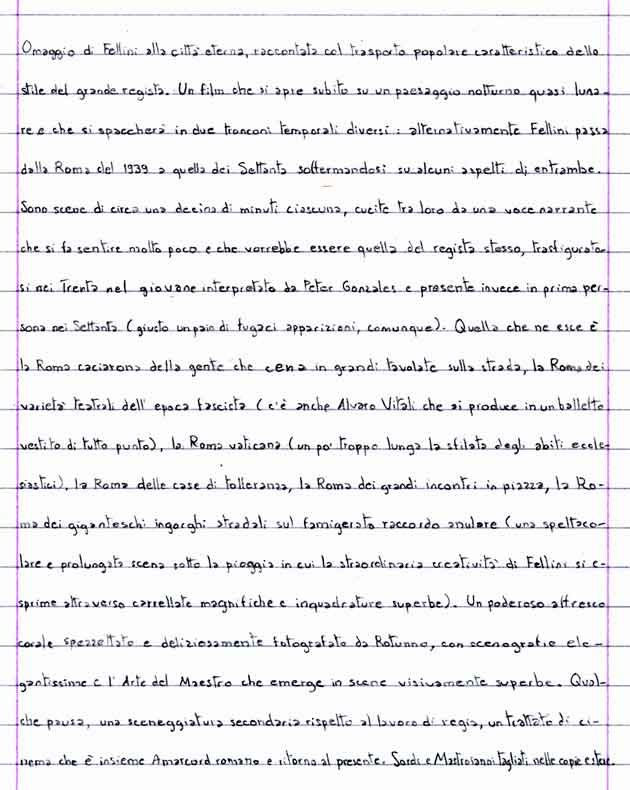 Omaggio di Fellini alla città eterna, raccontata col trasporto popolare caratteristico dello
stile del grande regista. Un film che si apre subito su un paesaggio notturno quasi luna-
re e che si spaccherà in due tronconi temporali diversi: alternativamente Fellini passa
dalla Roma del 1939 a quella dei Settanta soffermandosi su alcuni aspetti di entrambe.
Sono scene di circa una decina di minuti ciascuna, cucite tra loro da una voce narrante
che si fa sentire molto poco e che vorrebbe essere quella del regista stesso, trasfigurato-
si nei Trenta nel giovane interpretato da Peter Gonzales e presente invece in prima per-
sona nei Settanta (giusto un paio di fugaci apparizioni, comunque). Quella che ne esce è
la Roma caciarona della gente che cena in grandi tavolate sulla strada, la Roma dei
varietà teatrali dell'epoca fascista (c'è anche Alvaro Vitali che si produce in un balletto
vestito di tutto punto), la Roma vaticana (un po' troppo lunga la sfilata degli abiti eccle-
siastici), la Roma delle case di tolleranza, la Roma dei grandi incontri in piazza, la Ro-
ma dei giganteschi ingorghi stradali sul famigerato raccordo anulare (una spettaco-
lare e prolungata scena sotto la pioggia in cui la straordinaria creatività di Fellini si e-
sprime attraverso carrellate magnifiche e inquadrature superbe). Un poderoso affresco
corale spezzettato e deliziosamente fotografato da Rotunno, con scenografie ele-
gantissime e l'Arte del Maestro che emerge in scene visivamente superbe. Qual-
che pausa, una sceneggiatura secondaria rispetto al lavoro di regia, un trattato di ci-
nema che è insieme Amarcord romano e ritorno al presente. Sordi e Mastroianni tagliati nelle copie estere.